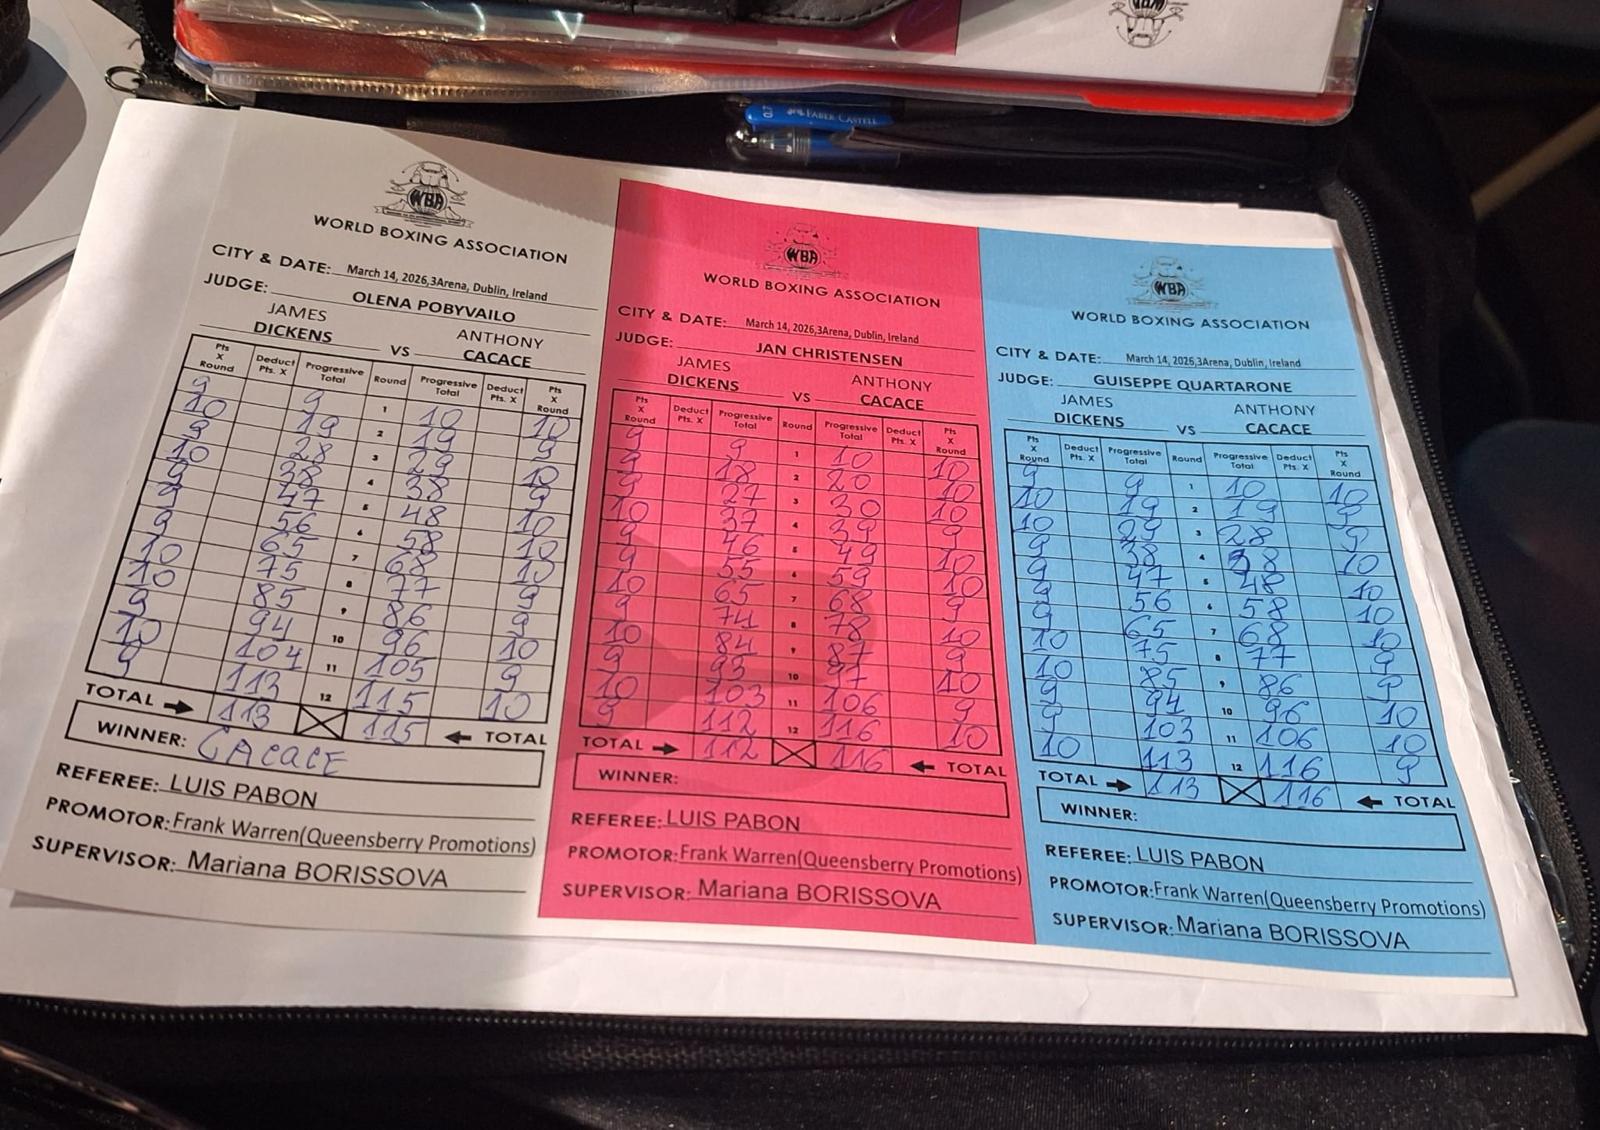 FABER CASTELL
0.7
WBA
WORLD BOXING ASSOCIATION
CITY & DATE: March 14, 2026,3Arena, Dublin, Ireland
JUDGE: OLENA POBYVAILO
JAMES ANTHONY
DICKENS VS CACACE
Pts X Round Deduct Pts. X Progressive Total Round Progressive Total Deduct Pts. X Pts X Round
9 9 1 10 10
10 19 2 19 9
9 28 3 29 10
10 38 4 38 9
9 47 5 48 10
9 56 6 58 10
9 65 7 68 10
10 75 8 77 9
10 85 9 86 9
9 94 10 96 10
10 104 11 105 9
9 113 12 115 10
TOTAL 113 115 TOTAL
WINNER: CACACE
REFEREE: LUIS PABON
PROMOTOR: Frank Warren(Queensberry Promotions)
SUPERVISOR: Mariana BORISSOVA
WBA
WORLD BOXING ASSOCIATION
CITY & DATE: March 14, 2026,3Arena, Dublin, Ireland
JUDGE: JAN CHRISTENSEN
JAMES ANTHONY
DICKENS VS CACACE
Pts X Round Deduct Pts. X Progressive Total Round Progressive Total Deduct Pts. X Pts X Round
9 9 1 10 10
9 18 2 20 10
9 27 3 30 10
10 37 4 39 9
9 46 5 49 10
9 55 6 59 10
10 65 7 68 9
9 74 8 78 10
10 84 9 87 9
9 93 10 97 10
10 103 11 106 9
9 112 12 116 10
TOTAL 112 116 TOTAL
WINNER:
REFEREE: LUIS PABON
PROMOTOR: Frank Warren(Queensberry Promotions)
SUPERVISOR: Mariana BORISSOVA
WBA
WORLD BOXING ASSOCIATION
CITY & DATE: March 14, 2026,3Arena, Dublin, Ireland
JUDGE: GUISEPPE QUARTARONE
JAMES ANTHONY
DICKENS VS CACACE
Pts X Round Deduct Pts. X Progressive Total Round Progressive Total Deduct Pts. X Pts X Round
9 9 1 10 10
10 19 2 19 9
10 29 3 28 9
9 38 4 38 10
9 47 5 48 10
9 56 6 58 10
9 65 7 68 10
10 75 8 77 9
10 85 9 86 9
9 94 10 96 10
9 103 11 106 10
10 113 12 116 9
TOTAL 113 116 TOTAL
WINNER:
REFEREE: LUIS PABON
PROMOTOR: Frank Warren(Queensberry Promotions)
SUPERVISOR: Mariana BORISSOVA